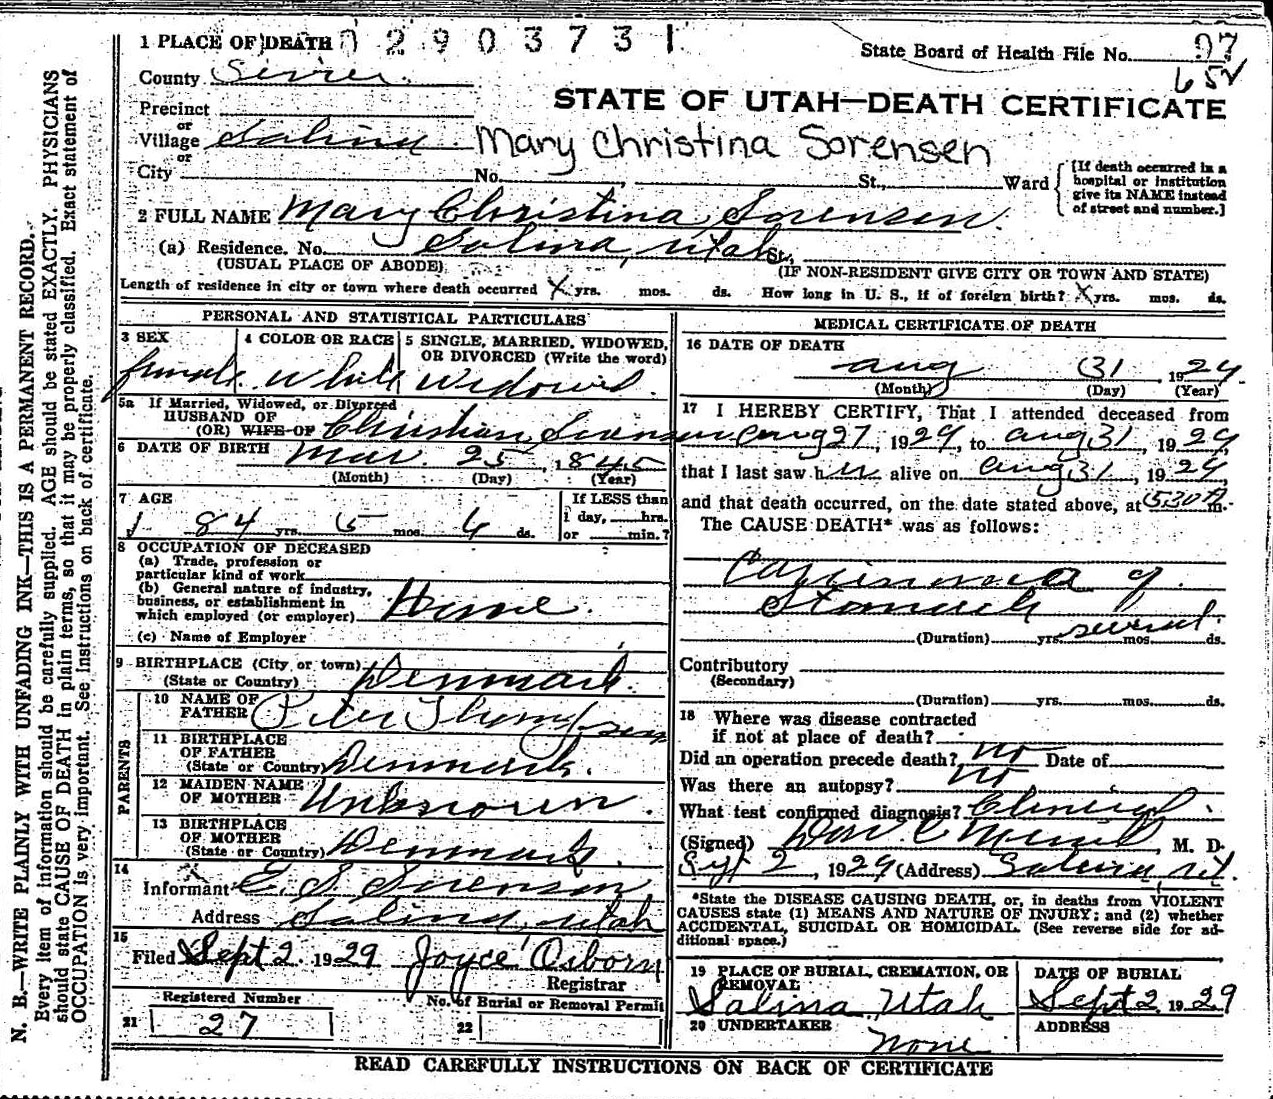 1 PLACE OF DEATH 0290373 1
State Board of Health File No. 97
652
County Sevier
STATE OF UTAH—DEATH CERTIFICATE
Precinct
or
Village Salina Mary Christina Sorensen
or
City No. , St., Ward
[If death occurred in a
hospital or institution
give its NAME instead
of street and number.]
2 FULL NAME Mary Christina Sorensen
(a) Residence. No. Salina, Utah St.,
(USUAL PLACE OF ABODE) (IF NON-RESIDENT GIVE CITY OR TOWN AND STATE)
Length of residence in city or town where death occurred X yrs. mos. ds. How long in U. S., if of foreign birth? X yrs. mos. ds.
PERSONAL AND STATISTICAL PARTICULARS
3 SEX
female
4 COLOR OR RACE
White
5 SINGLE, MARRIED, WIDOWED,
OR DIVORCED (Write the word)
Widowed
5a If Married, Widowed, or Divorced
HUSBAND OF
(OR) WIFE OF Christian Sorensen
6 DATE OF BIRTH Mar. 25, 1845
(Month) (Day) (Year)
7 AGE
84 yrs. 5 mos. 6 ds.
If LESS than
1 day, hrs.
or min.?
8 OCCUPATION OF DECEASED
(a) Trade, profession or
particular kind of work
(b) General nature of industry,
business, or establishment in
which employed (or employer) Home
(c) Name of Employer
9 BIRTHPLACE (City or town)
(State or Country) Denmark
PARENTS
10 NAME OF
FATHER Peter Thompson
11 BIRTHPLACE
OF FATHER
(State or Country) Denmark
12 MAIDEN NAME
OF MOTHER Unknown
13 BIRTHPLACE
OF MOTHER
(State or Country) Denmark
14
Informant E. S. Sorenson
Address Salina, Utah
15
Filed Sept 2 1929 Joyce Osborn
Registrar
Registered Number
21 27
No. of Burial or Removal Permit
22
MEDICAL CERTIFICATE OF DEATH
16 DATE OF DEATH
Aug 31 1929
(Month) (Day) (Year)
17 I HEREBY CERTIFY, That I attended deceased from
Aug 27, 1929, to Aug 31, 1929,
that I last saw her alive on Aug 31, 1929,
and that death occurred, on the date stated above, at 5:30 A m.
The CAUSE DEATH* was as follows:
Carcinoma of
Stomach
(Duration) yrs. several mos. ds.
Contributory
(Secondary)
(Duration) yrs. mos. ds.
18 Where was disease contracted
if not at place of death?
Did an operation precede death? no Date of
Was there an autopsy? no
What test confirmed diagnosis? Clinical
(Signed) M. D.
Sept 2, 1929 (Address) Salina, Ut.
*State the DISEASE CAUSING DEATH, or, in deaths from VIOLENT
CAUSES state (1) MEANS AND NATURE OF INJURY; and (2) whether
ACCIDENTAL, SUICIDAL OR HOMICIDAL. (See reverse side for ad-
ditional space.)
19 PLACE OF BURIAL, CREMATION, OR
REMOVAL
Salina Utah
DATE OF BURIAL
Sept 2 1929
20 UNDERTAKER
None
ADDRESS
READ CAREFULLY INSTRUCTIONS ON BACK OF CERTIFICATE
N. B.—WRITE PLAINLY WITH UNFADING INK—THIS IS A PERMANENT RECORD.
Every item of information should be carefully supplied. AGE should be stated EXACTLY. PHYSICIANS
should state CAUSE OF DEATH in plain terms, so that it may be properly classified. Exact statement of
OCCUPATION is very important. See instructions on back of certificate.